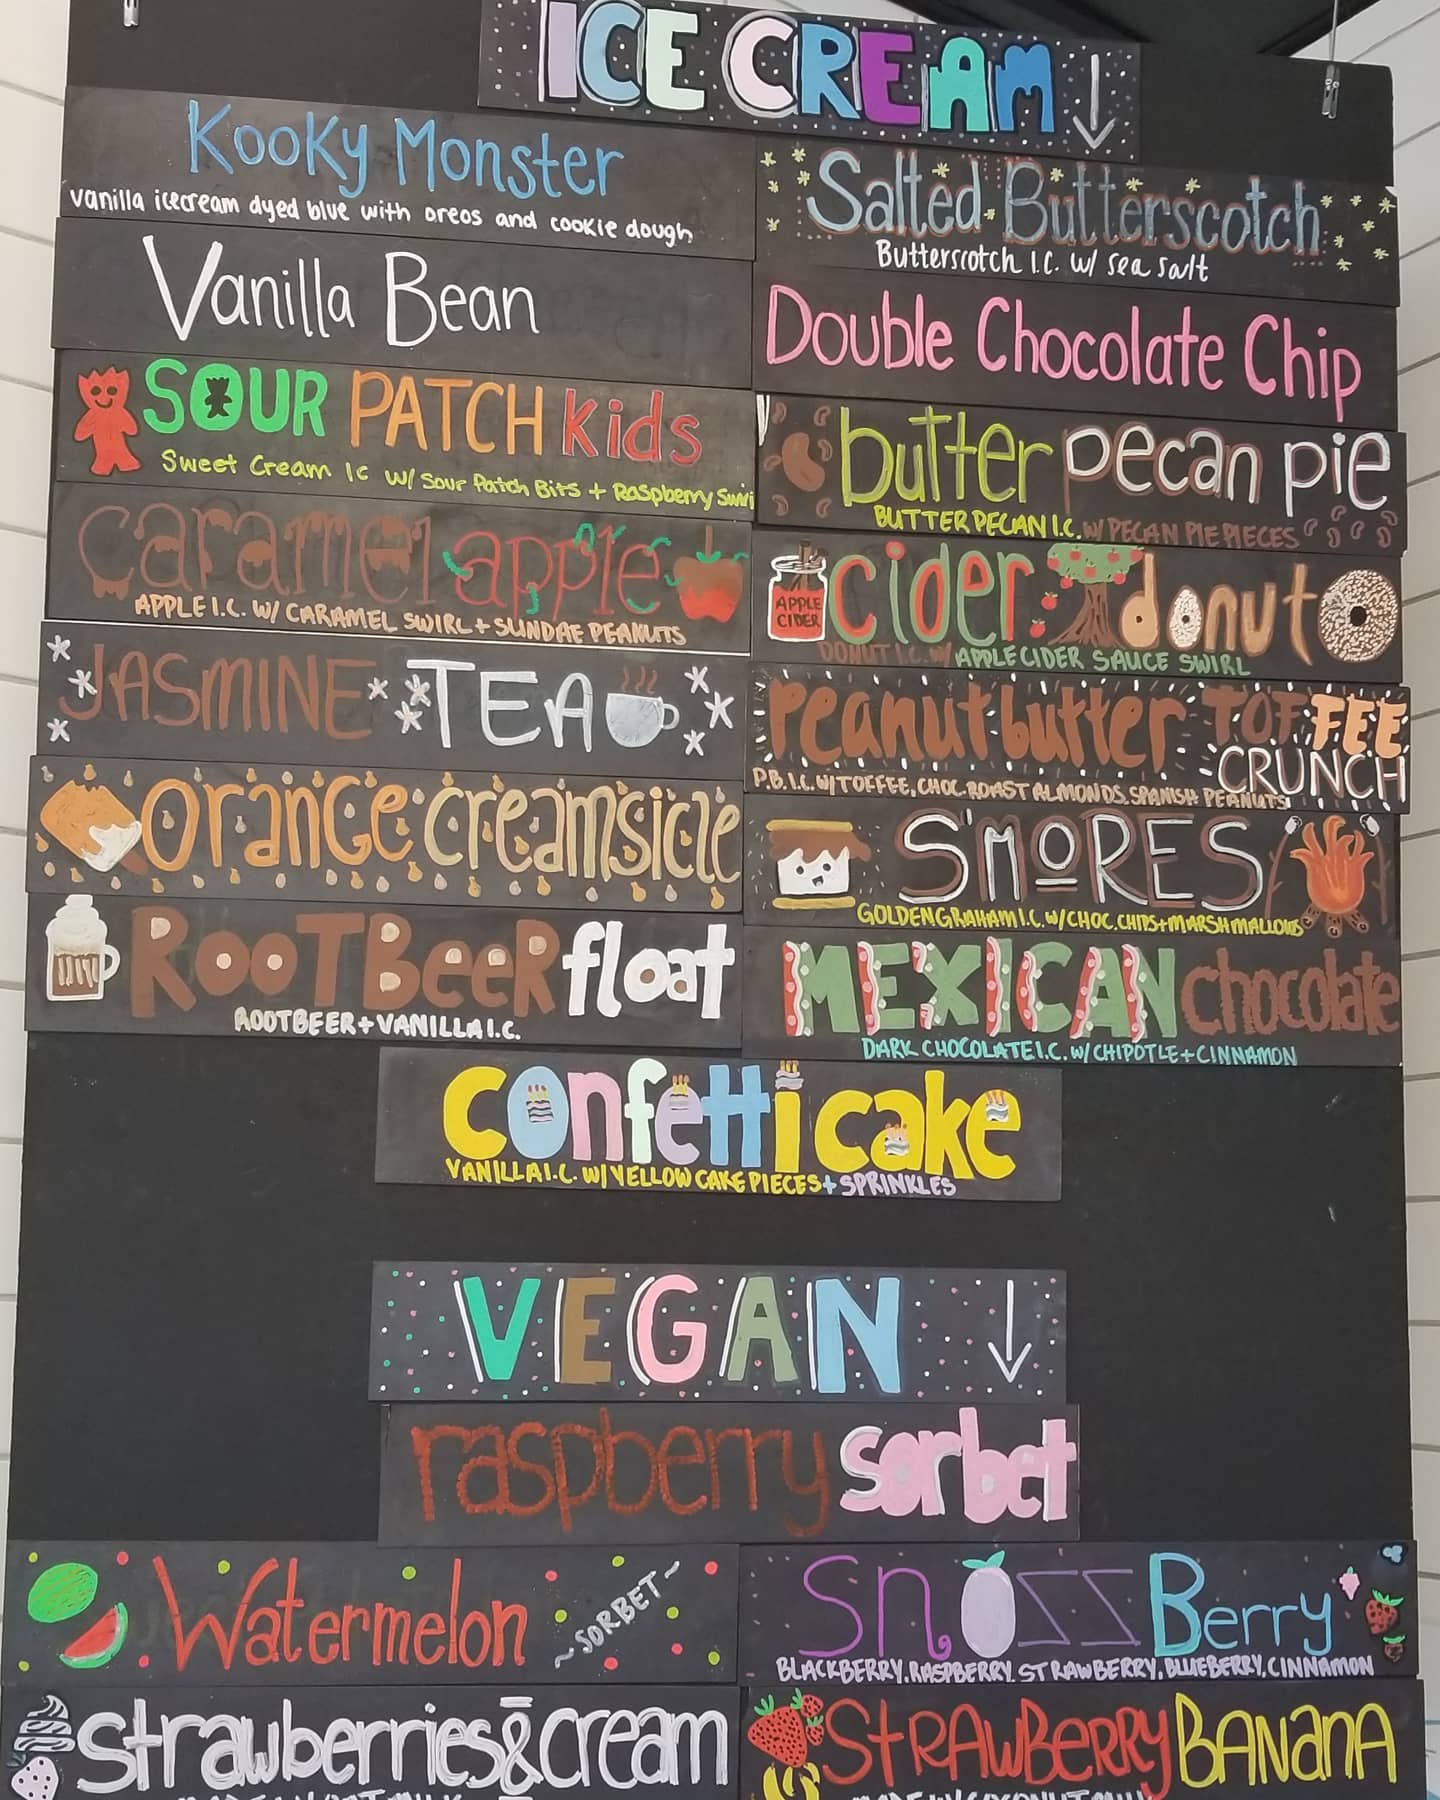 ICE CREAM
Kooky Monster
vanilla icecream dyed blue with oreos and cookie dough
Vanilla Bean
SOUR PATCH Kids
Sweet Cream IC w/ Sour Patch Bits + Raspberry Swirl
caramel apple
APPLE I.C. W/ CARAMEL SWIRL + SUNDAE PEANUTS
JASMINE TEA
orange creamsicle
ROOTBEER float
ROOTBEER + VANILLA I.C.
Salted Butterscotch
Butterscotch I.C. w/ sea salt
Double Chocolate Chip
butter pecan pie
BUTTER PECAN I.C. W/ PECAN PIE PIECES
APPLE
CIDER
cider donut
DONUT I.C. W/ APPLE CIDER SAUCE SWIRL
peanut butter TOFFEE
CRUNCH
P.B. I.C. W/ TOFFEE, CHOC. ROAST ALMONDS, SPANISH PEANUTS
S'MORES
GOLDEN GRAHAM I.C. W/ CHOC. CHIPS + MARSHMALLOWS
MEXICAN chocolate
DARK CHOCOLATE I.C. W/ CHIPOTLE + CINNAMON
confetti cake
VANILLA I.C. W/ YELLOW CAKE PIECES + SPRINKLES
VEGAN
raspberry sorbet
Watermelon ~SORBET~
SnozzBerry
BLACKBERRY, RASPBERRY, STRAWBERRY, BLUEBERRY, CINNAMON
strawberries & cream
STRAWBERRY BANANA